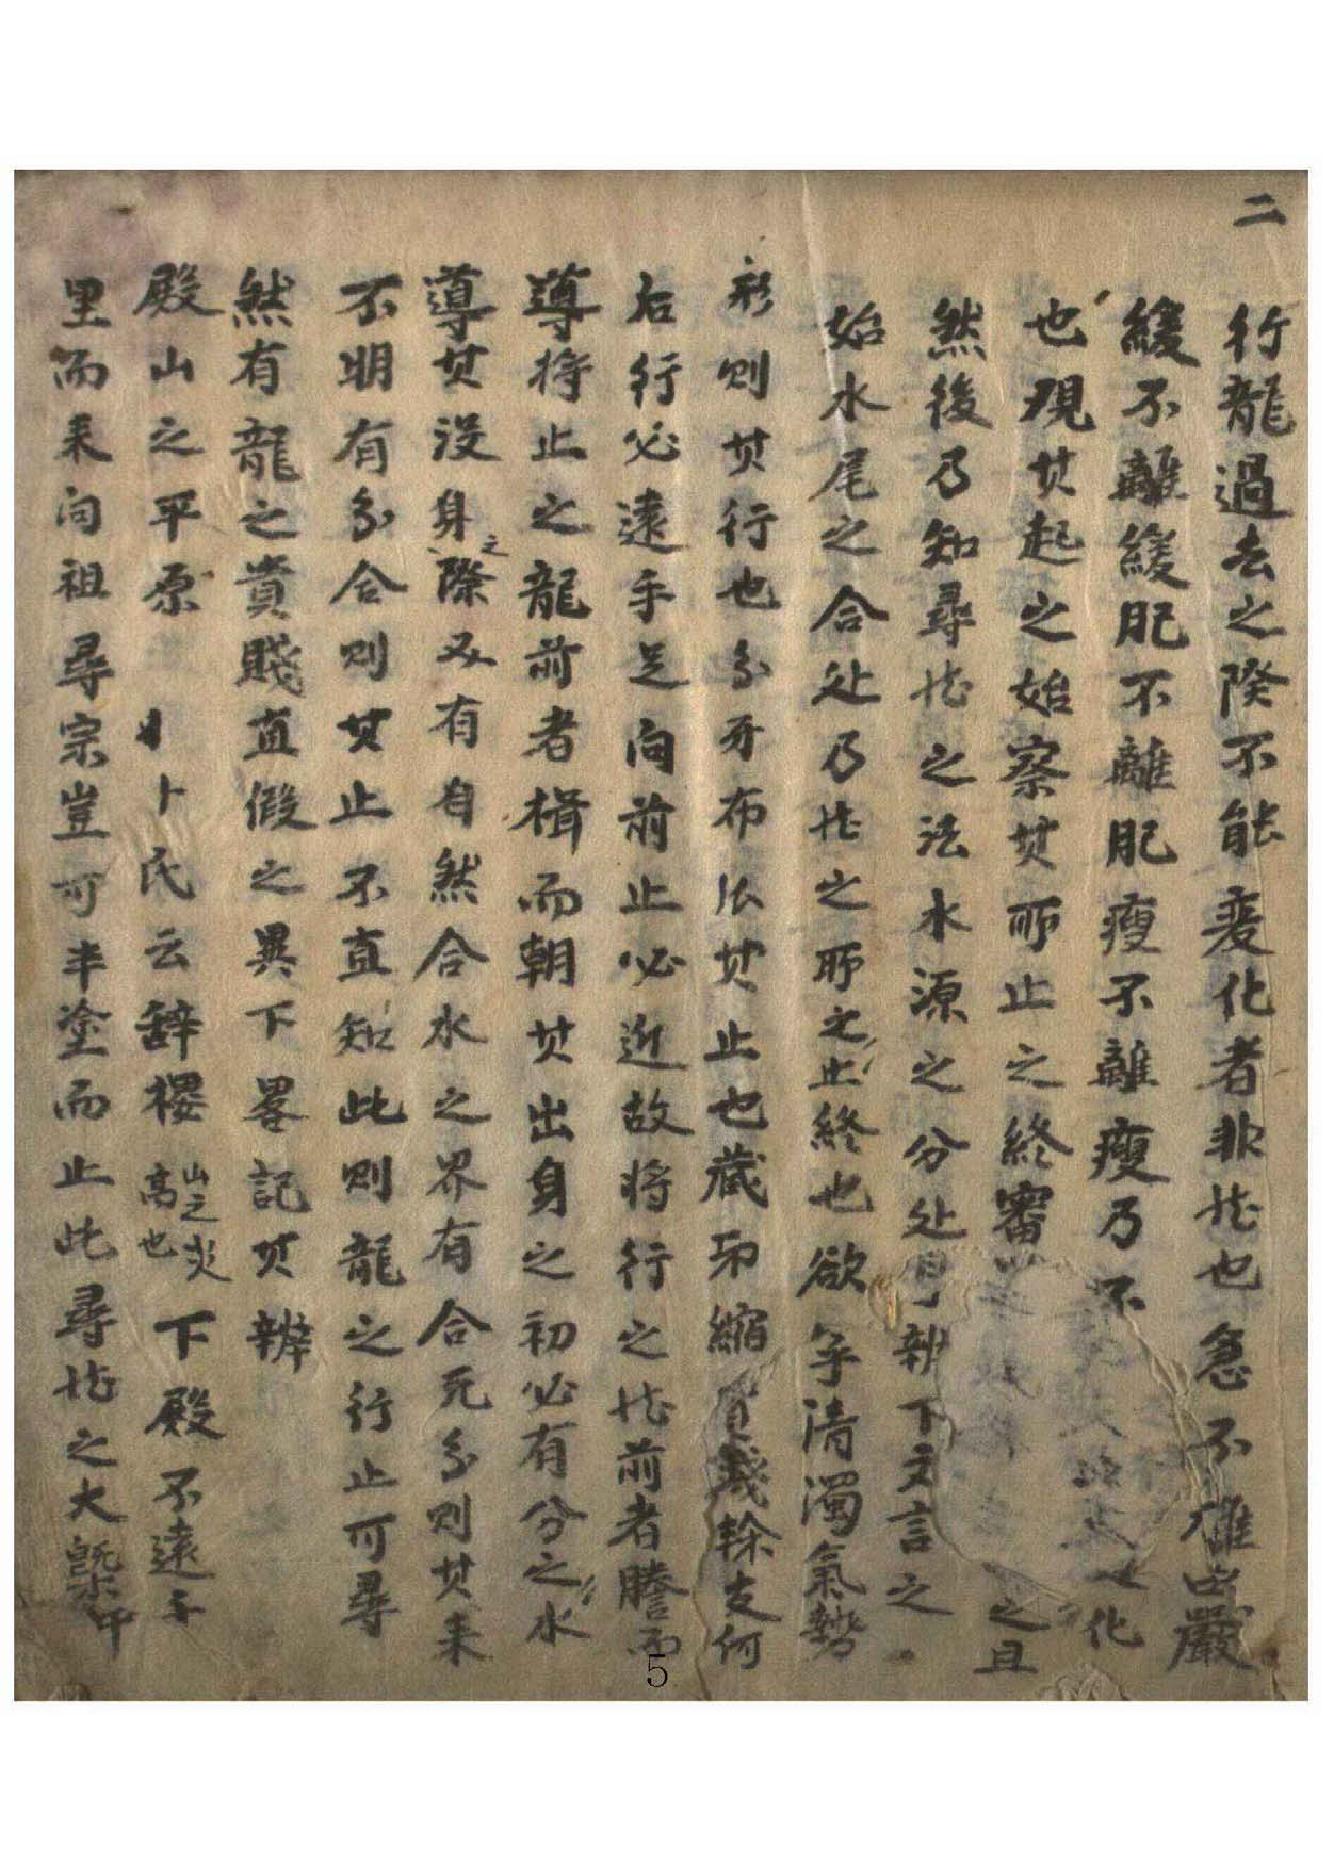 二
行龍過去之際不能変化者非龙也急不離山嚴
緩不離緩肥不離肥瘦不離瘦乃不化
也現其起之始察其所止之終審之且
然後乃知尋龙之法水源之分处辨下文言之
始水尾之合处乃龙之所之止終也欲爭清濁氣勢
形则其行也分牙布爪其止也藏形縮首幾幹支何
后行必遠手足向前止必近故将行之龙前者謄而
導将止之龍前者楫而朝其出身之初必有分之水
導其没身之際又有自然合水之界有合无分则其来
不明有分合则其止不直知此则龍之行止可尋
然有龍之貴賤直假之異下畧記其辨
殿山之平原 卜氏云辞楼山之尖高也下殿不遠千
里而来问祖尋宗豈可半塗而止此尋龙之大槩中
5